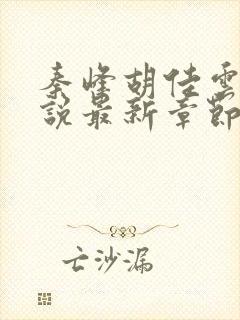 秦峰胡佳雲
說最新章節
亡沙漏